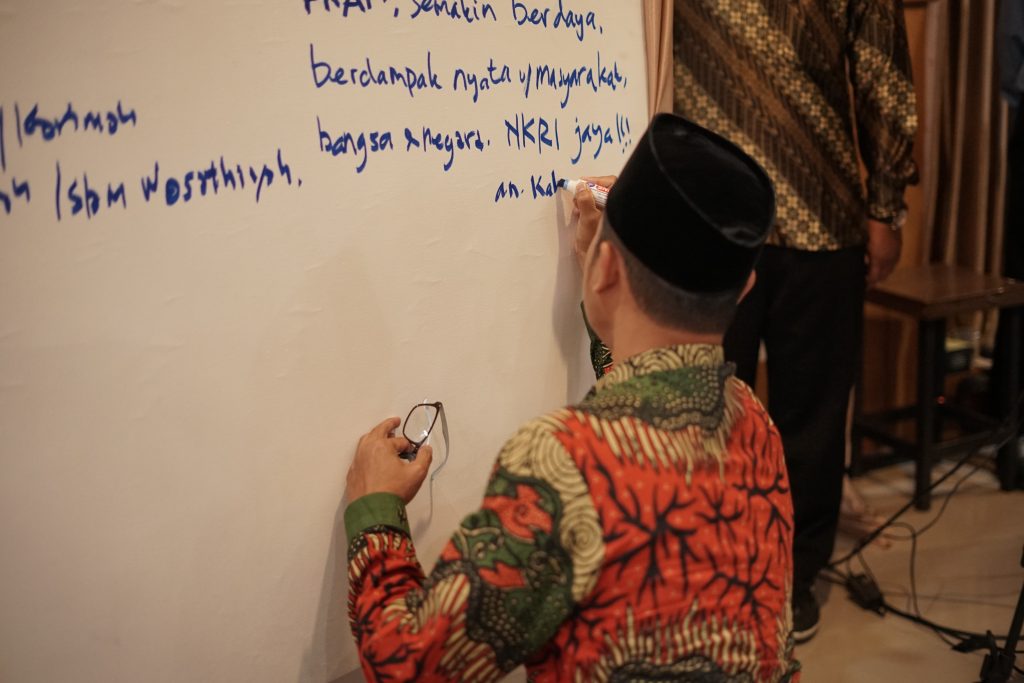 semakin berdaya,
berdampak nyata u/ masyarakat,
bangsa & negara. NKRI jaya!!!
an. Kab
Islam Wasathiyah.